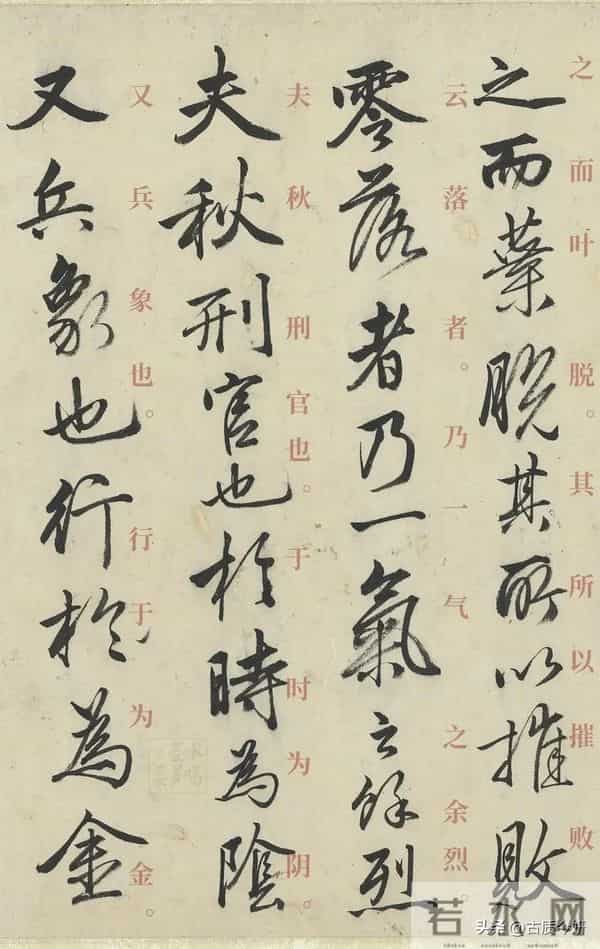 之而葉脫其所以摧敗
之而叶脱。其所以摧败
零落者乃一氣之餘烈
云落者。乃一气之余烈。
夫秋刑官也於時為陰
夫秋刑官也。于时为阴。
又兵象也行於為金
又兵象也。行于为金。
若水网
头条@古质今妍